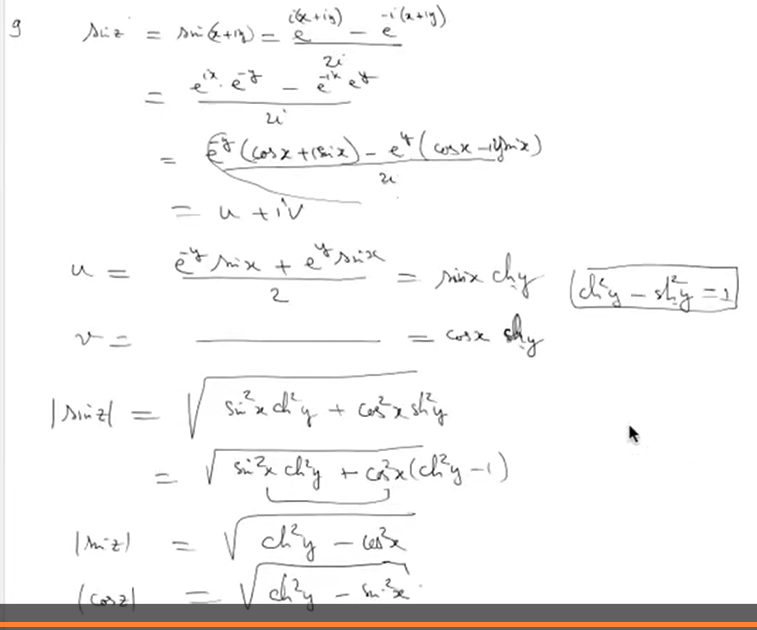 9 sin z = sin(x+iy) = (e^{i(x+iy)} − e^{−i(x+iy)}) / 2i
= (e^{ix}·e^{−y} − e^{−ix} e^{y}) / 2i
= (e^{−y}(cosx + i sinx) − e^{y}(cosx − i sinx)) / 2i
= u + iv
u = (e^{−y} sinx + e^{y} sinx) / 2 = sinx chy (ch²y − sh²y = 1
v = ———— = cosx shy
|sinz| = √(sin²x ch²y + cos²x sh²y)
= √(sin²x ch²y + cos²x(ch²y − 1))
|sinz| = √(ch²y − cos²x)
|cosz| = √(ch²y − sin²x)